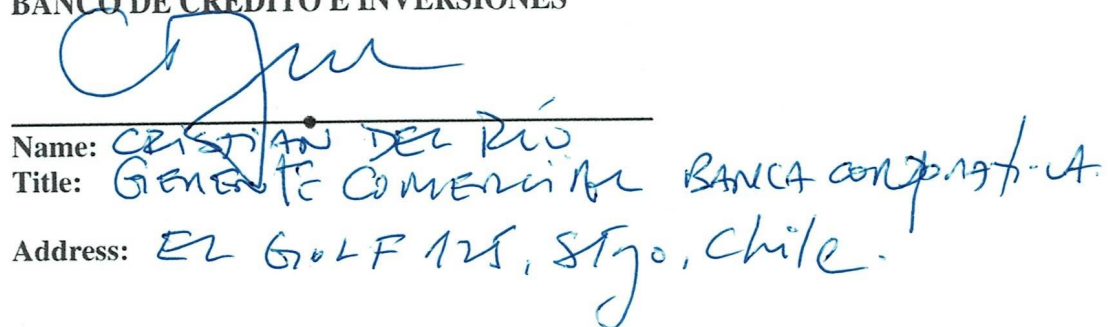 BANCO DE CREDITO E INVERSIONES
Name: CRISTIAN DEL RÍO
Title: GERENTE COMERCIAL BANCA CORPORATIVA.
Address: EL GOLF 125, Stgo, Chile.